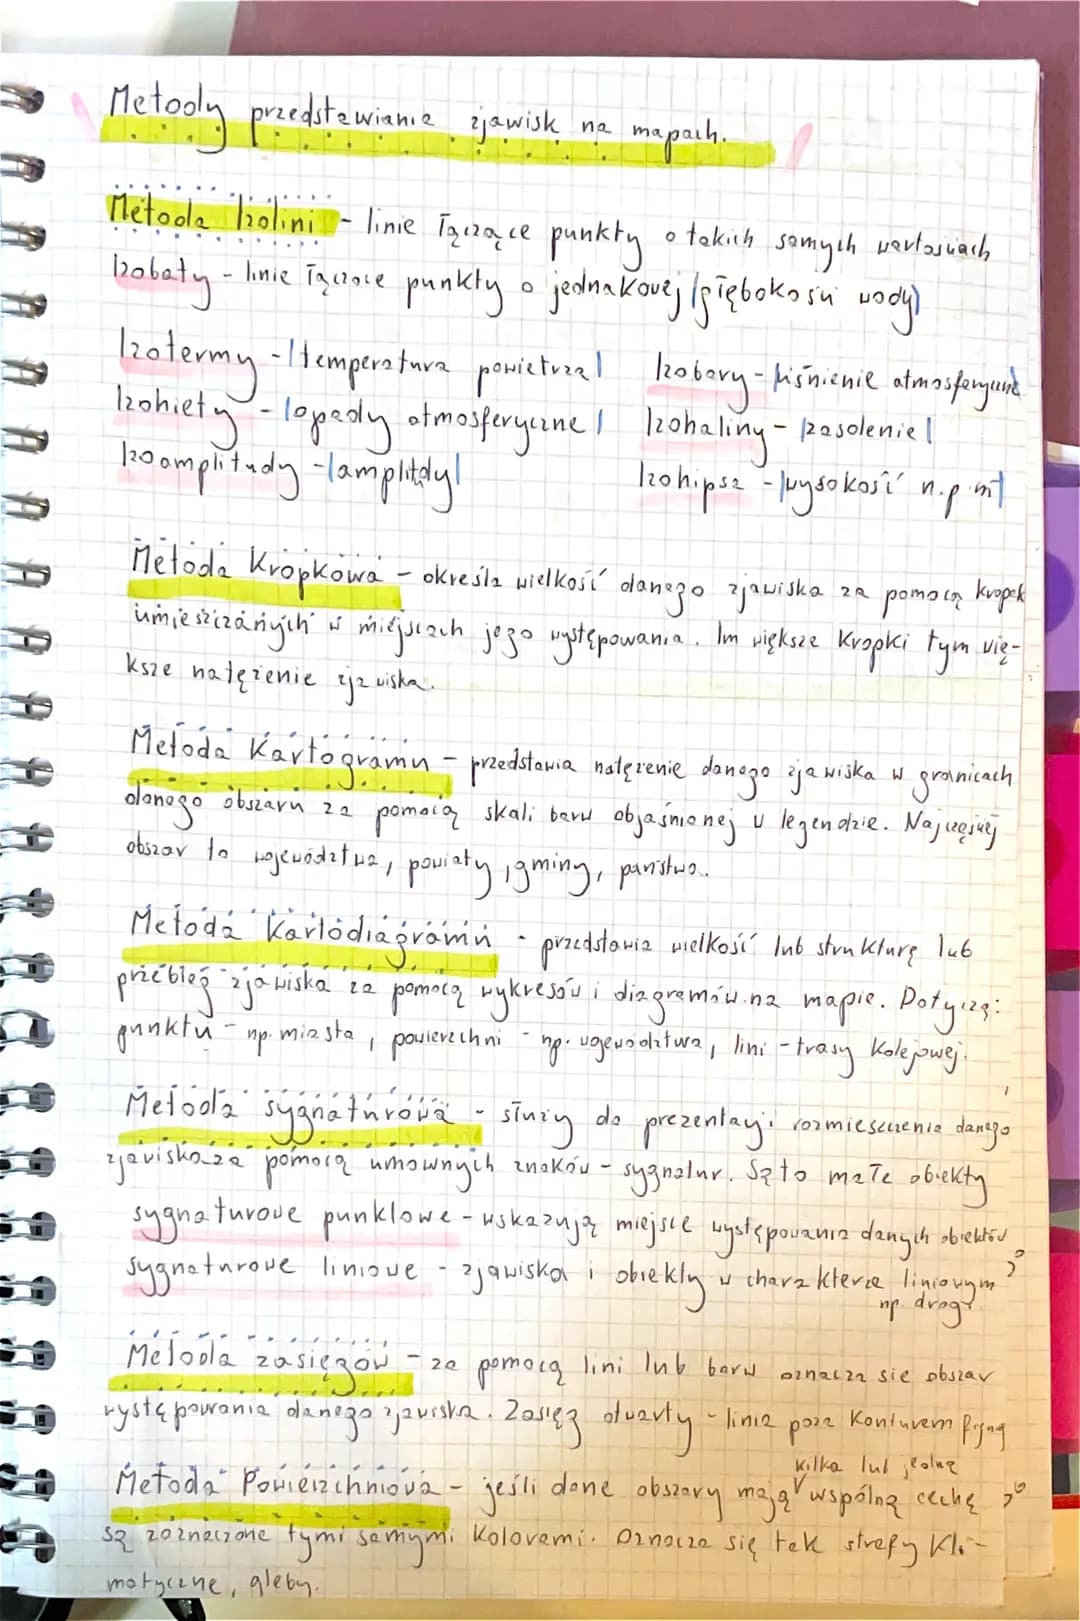 Metody przedstawiania zjawisk na mapach.
Metoda Izolini - linie łączące punkty o takich samych wartościach
Izobaty - linie łączące punkty o jednakowej (głębokości wody)
Izotermy - |temperatura powietrza| Izobary - |ciśnienie atmosferyczne
Izohiety - |opady atmosferyczne| Izohaliny - |zasolenie|
Izoamplitudy - |amplitudy| Izohipsa - |wysokość n.p.m|
Metoda Kropkowa - określa wielkość danego zjawiska za pomocą kropek
umieszczanych w miejscach jego występowania. Im większe kropki tym wię-
ksze natężenie zjawiska.
Metoda Kartogramu - przedstawia natężenie danego zjawiska w granicach
danego obszaru za pomocą skali barw objaśnionej w legendzie. Najczęściej
obszar to województwa, powiaty, gminy, państwo.
Metoda Kartodiagramu - przedstawia wielkość lub strukturę lub
przebieg zjawiska za pomocą wykresów i diagramów na mapie. Dotyczą:
punktu - np. miasta, powierzchni - np. województwa, lini - trasy kolejowej.
Metoda sygnaturowa - służy do prezentacji rozmieszczenia danego
zjawiska za pomocą umownych znaków - sygnatur. Są to małe obiekty
sygnaturowe punktowe - wskazują miejsce występowania danych obiektów
sygnaturowe liniowe - zjawiska i obiekty w charakterze liniowym
np. drogi.
Metoda zasięgów - za pomocą lini lub barw oznacza się obszar
występowania danego zjawiska. Zasięg otwarty - linia poza konturem
kilka lub jedną
Metoda Powierzchniowa - jeśli dane obszary mają wspólną cechę
są zaznaczone tymi samymi kolorami. Oznacza się tak strefy kli-
matyczne, gleby.